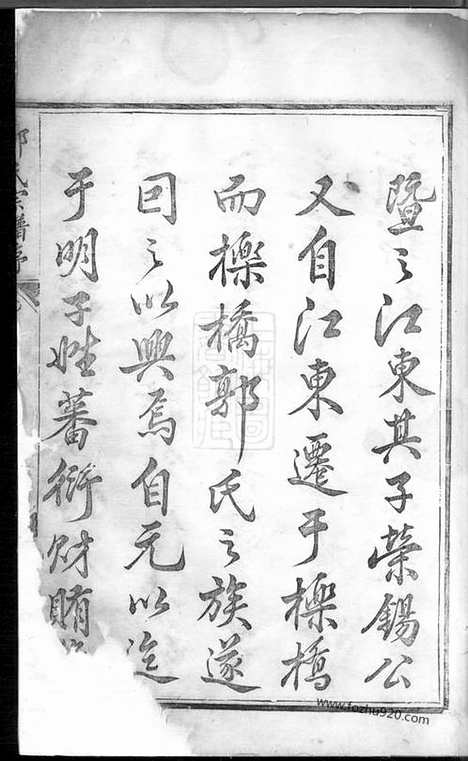 暨之江東其子榮錫公
又自江東遷于櫟橋
而櫟橋郭氏之族遂
因之以興焉自元以迄
于明子姓蕃衍財賄
氏宗譜序
www.fozhu920.com